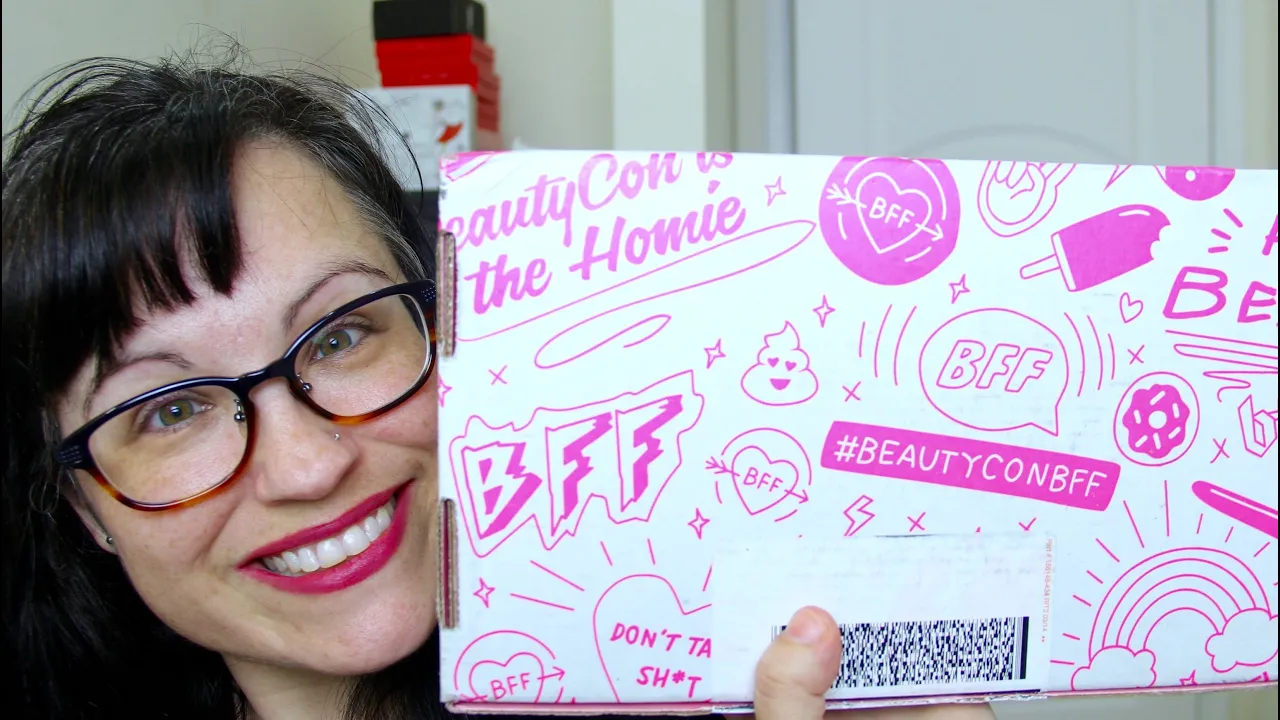 eautyCon is
the Homie
BFF
BFF
BFF
BFF
#BEAUTYCONBFF
BE
DON'T TA
SH*T
BFF